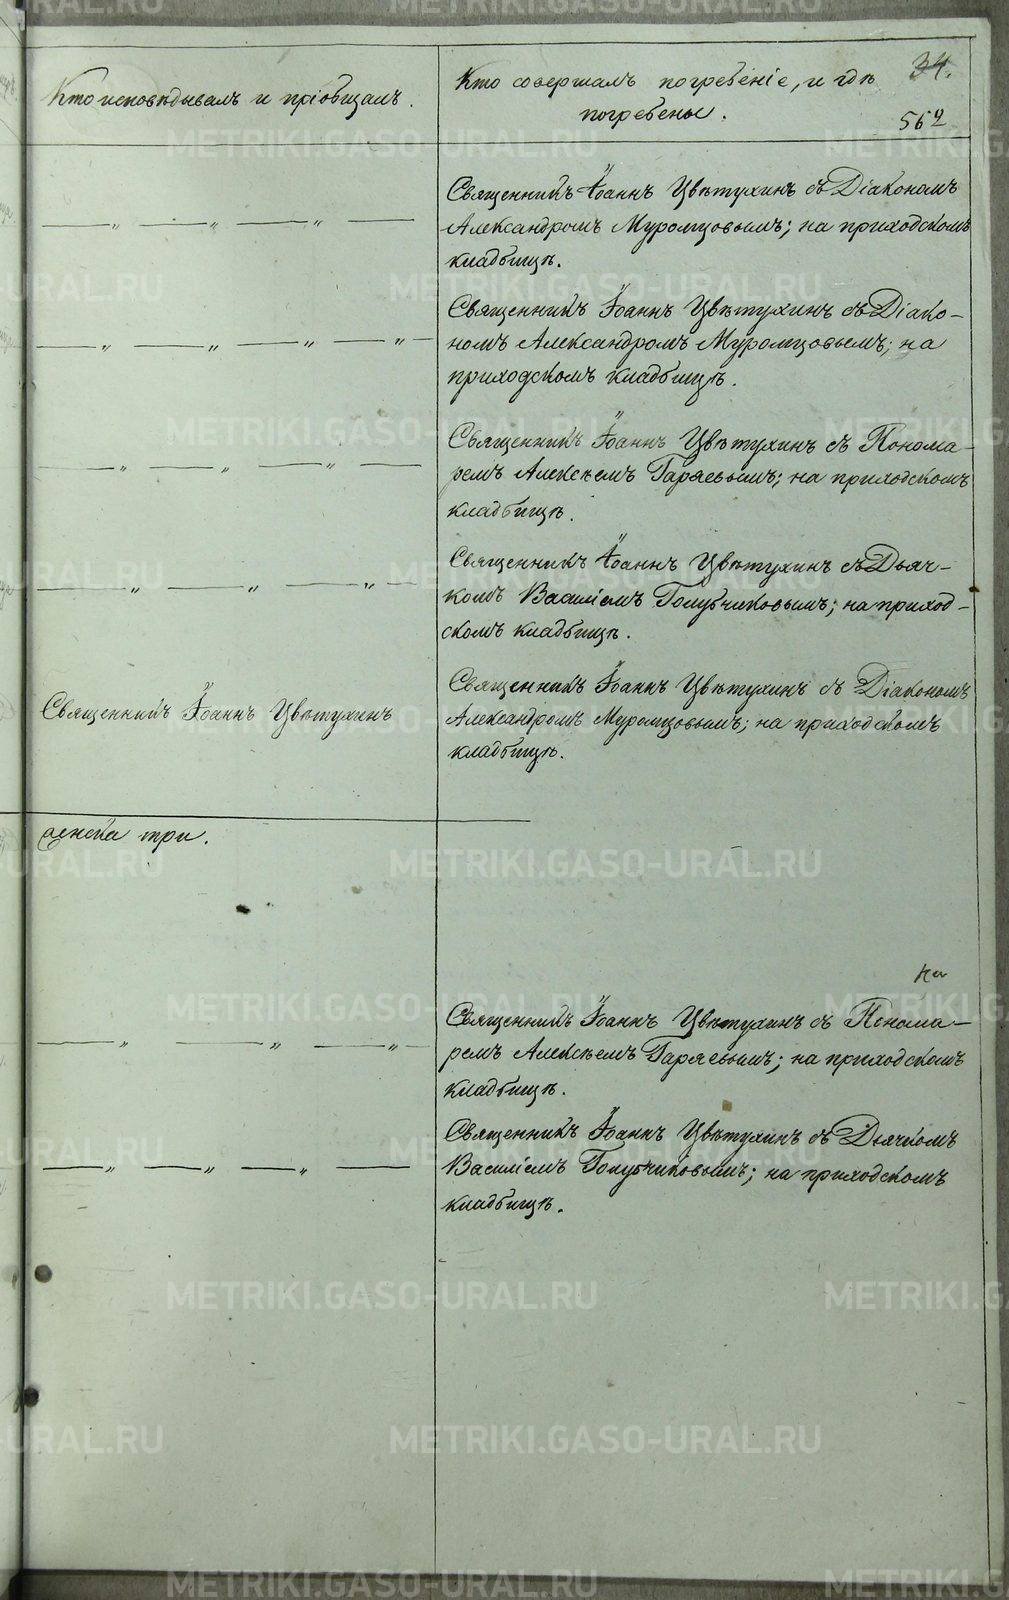 34.
562
Кто исповѣдывалъ и пріобщалъ.
Кто совершалъ погребеніе, и гдѣ
погребены.
Священникъ Іоаннъ Цвѣтухинъ съ Діакономъ
Александромъ Муромцовымъ; на приходскомъ
кладбищѣ.
Священникъ Іоаннъ Цвѣтухинъ съ Діако-
номъ Александромъ Муромцовымъ; на
приходскомъ кладбищѣ.
Священникъ Іоаннъ Цвѣтухинъ съ Понома-
ремъ Алексѣемъ Гаряевымъ; на приходскомъ
кладбищѣ.
Священникъ Іоаннъ Цвѣтухинъ съ Дьяч-
комъ Василіемъ Голубчиковымъ; на приход-
скомъ кладбищѣ.
Священникъ Іоаннъ Цвѣтухинъ
Священникъ Іоаннъ Цвѣтухинъ съ Діакономъ
Александромъ Муромцовымъ; на приходскомъ
кладбищѣ.
женска три.
на
Священникъ Іоаннъ Цвѣтухинъ съ Понома-
ремъ Алексѣемъ Гаряевымъ; на приходскомъ
кладбищѣ.
Священникъ Іоаннъ Цвѣтухинъ съ Дьячкомъ
Василіемъ Голубчиковымъ; на приходскомъ
кладбищѣ.
METRIKI.GASO-URAL.RU